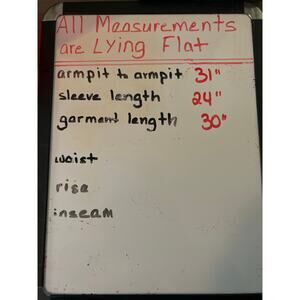 All Measurements
are Lying Flat
armpit to armpit 31"
sleeve length 24"
garment length 30"
waist
rise
inseam